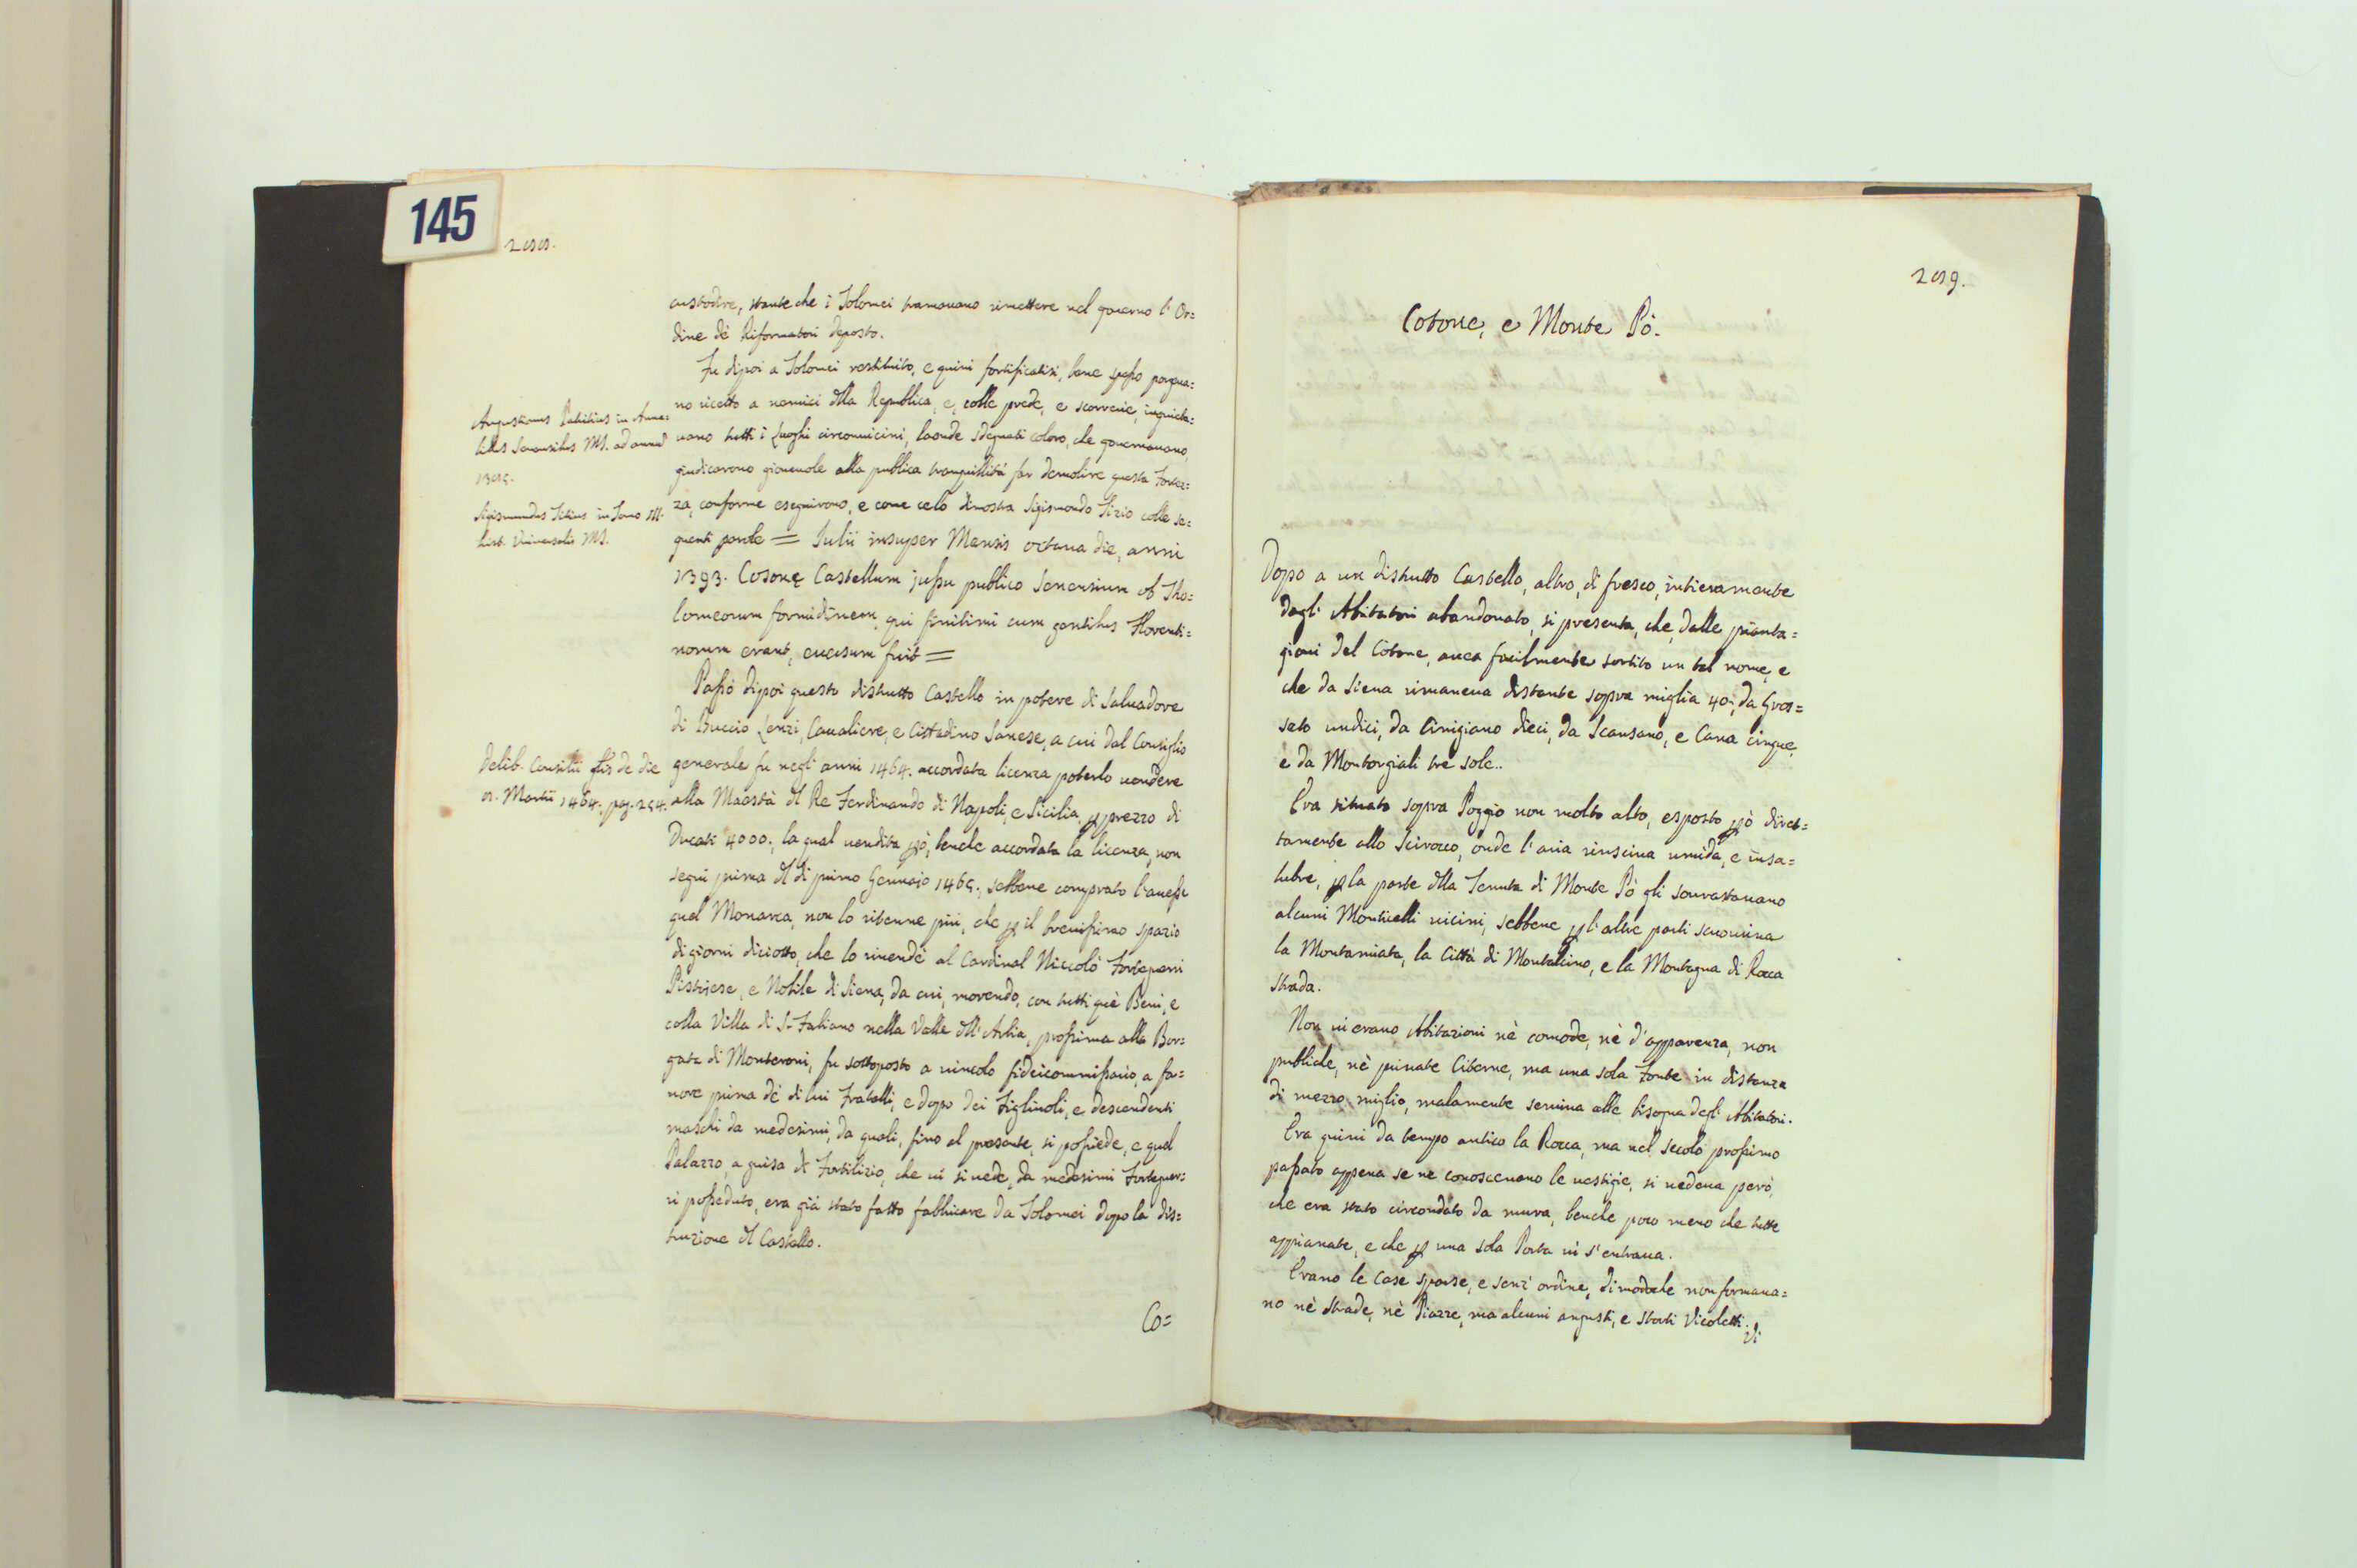 145
288.
custodire, stante che i Tolomei tramauano rimettere nel gouerno l'Or=
dine dè Riformatori deposto.
Fu dipoi a Tolomei restituito, e quiui fortificatisi, bene speßo porgeua=
no ricetto a nemici dlla Republica, e, colle prede, e scorrerie, inquieta=
uano tutti i Luoghi circonuicini, laonde sdegnati coloro, che gouernauano,
giudicarono gioueuole alla publica tranquillità far demolire questa Fortez=
za, conforme eseguirono, e come celo dimostra Sigismondo Tizio colle se=
guenti parole = Iulii insuper Mensis octaua die, anni
1393. Cosonę Castellum jußu publico Senensium ob Tho=
lomeorum formidinem, qui finitimi cum gentibus Florenti=
norum erant, euersum fuit =
Paßò dipoi questo distrutto Castello in potere di Saluadore
di Buccio Lenzi, Caualiere, e Cittadino Sanese, a cui dal Consiglio
generale fu negli anni 1464. accordata licenza poterlo uendere
alla Maestà dl Re Ferdinando di Napoli, e Sicilia, p prezzo di
Ducati 4000., la qual uendita pò, benche accordata la licenza, non
seguì prima dl dì primo Gennajo 1465., sebbene comprato l'aueße
quel Monarca, non lo ritenne più, che p il breuißimo spazio
di giorni diciotto, che lo riuendè al Cardinal Niccolò Forteguerri
Pistojese, e Nobile di Siena, da cui, morendo, con tutti què Beni, e
colla Villa di S. Fabiano nella Valle dll'Arbia, proßima alla Bor=
gata di Monteroni, fu sottoposto a uincolo fideicommißario, a fa=
uore prima dè di lui Fratelli, e dopo dei Figliuoli, e descendenti
maschi da medesimi, da quali, fino al presente, si poßiede, e quel
Palazzo, a guisa di Fortilizio, che ui si uede, da medesimi Forteguer=
ri poßeduto, era già stato fatto fabbricare da Tolomei dopo la dis=
truzione dl Castello.
Co=
Augustinus Patritius in Anna=
libus Senensibus MS. ad annū
1385.
Sigismundus Titius in Tomo III.
hist. Vniuersalis MS.
Delib. Consilii Glis de die
8. Martii 1464. pag. 254.
289.
Cotone, e Monte Pò.
Dopo a un distrutto Castello, altro, di fresco, intieramente
dagli Abitatori abandonato, si presenta, che, dalle pianta=
gioni del Cotone, auea facilmente sortito un tal nome, e
che da Siena rimaneua distante sopra miglia 40., da Gros=
seto undici, da Cinigiano dieci, da Scansano, e Cana cinque,
e da Montorgiali tre sole..
Era situato sopra Poggio non molto alto, esposto pò diret=
tamente allo Scirocco, onde l'aria riusciua umida, e insa=
lubre, p la parte dlla Tenuta di Monte Pò gli sourastauano
alcuni Monticelli uicini, sebbene p l'altre parti scuopriua
la Montamiata, la Città di Montalcino, e la Montagna di Rocca
strada.
Non ui erano Abitazioni nè comode, nè d'apparenza, non
publiche, nè priuate Citerne, ma una sola Fonte in distanza
di mezzo miglio, malamente seruiua alle bisogna degli Abitatori.
Era quiui da tempo antico la Rocca, ma nel secolo proßimo
paßato appena se ne conosceuano le uestigie, si uedeua però,
che era stato circondato da mura, benche poco meno che tutte
appianate, e che p una sola Porta ui s'entraua.
Erano le Case sparse, e senz'ordine, dimodoche non formaua=
no nè strade, nè Piazze, ma alcuni angusti, e storti Vicoletti.
Vi